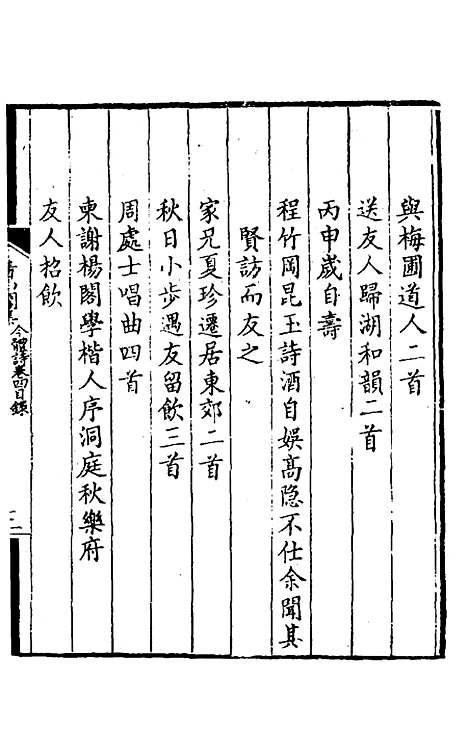 與梅圃道人二首
送友人歸湖和韻二首
丙申歲自壽
程竹岡昆玉詩酒自娛高隐不仕余聞其
賢訪而友之
家兄夏珍遷居東郊二首
秋日小步遇友留飲三首
周處士唱曲四首
柬謝楊閣學楷人序洞庭秋樂府
友人招飲
今體詩卷四目錄